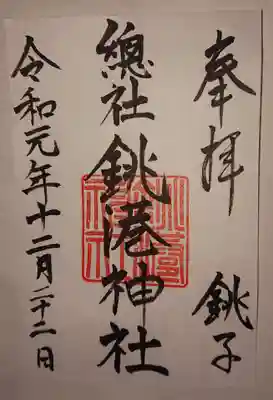 奉拝 銚子
總社 銚港神社
令和元年十二月二十二日